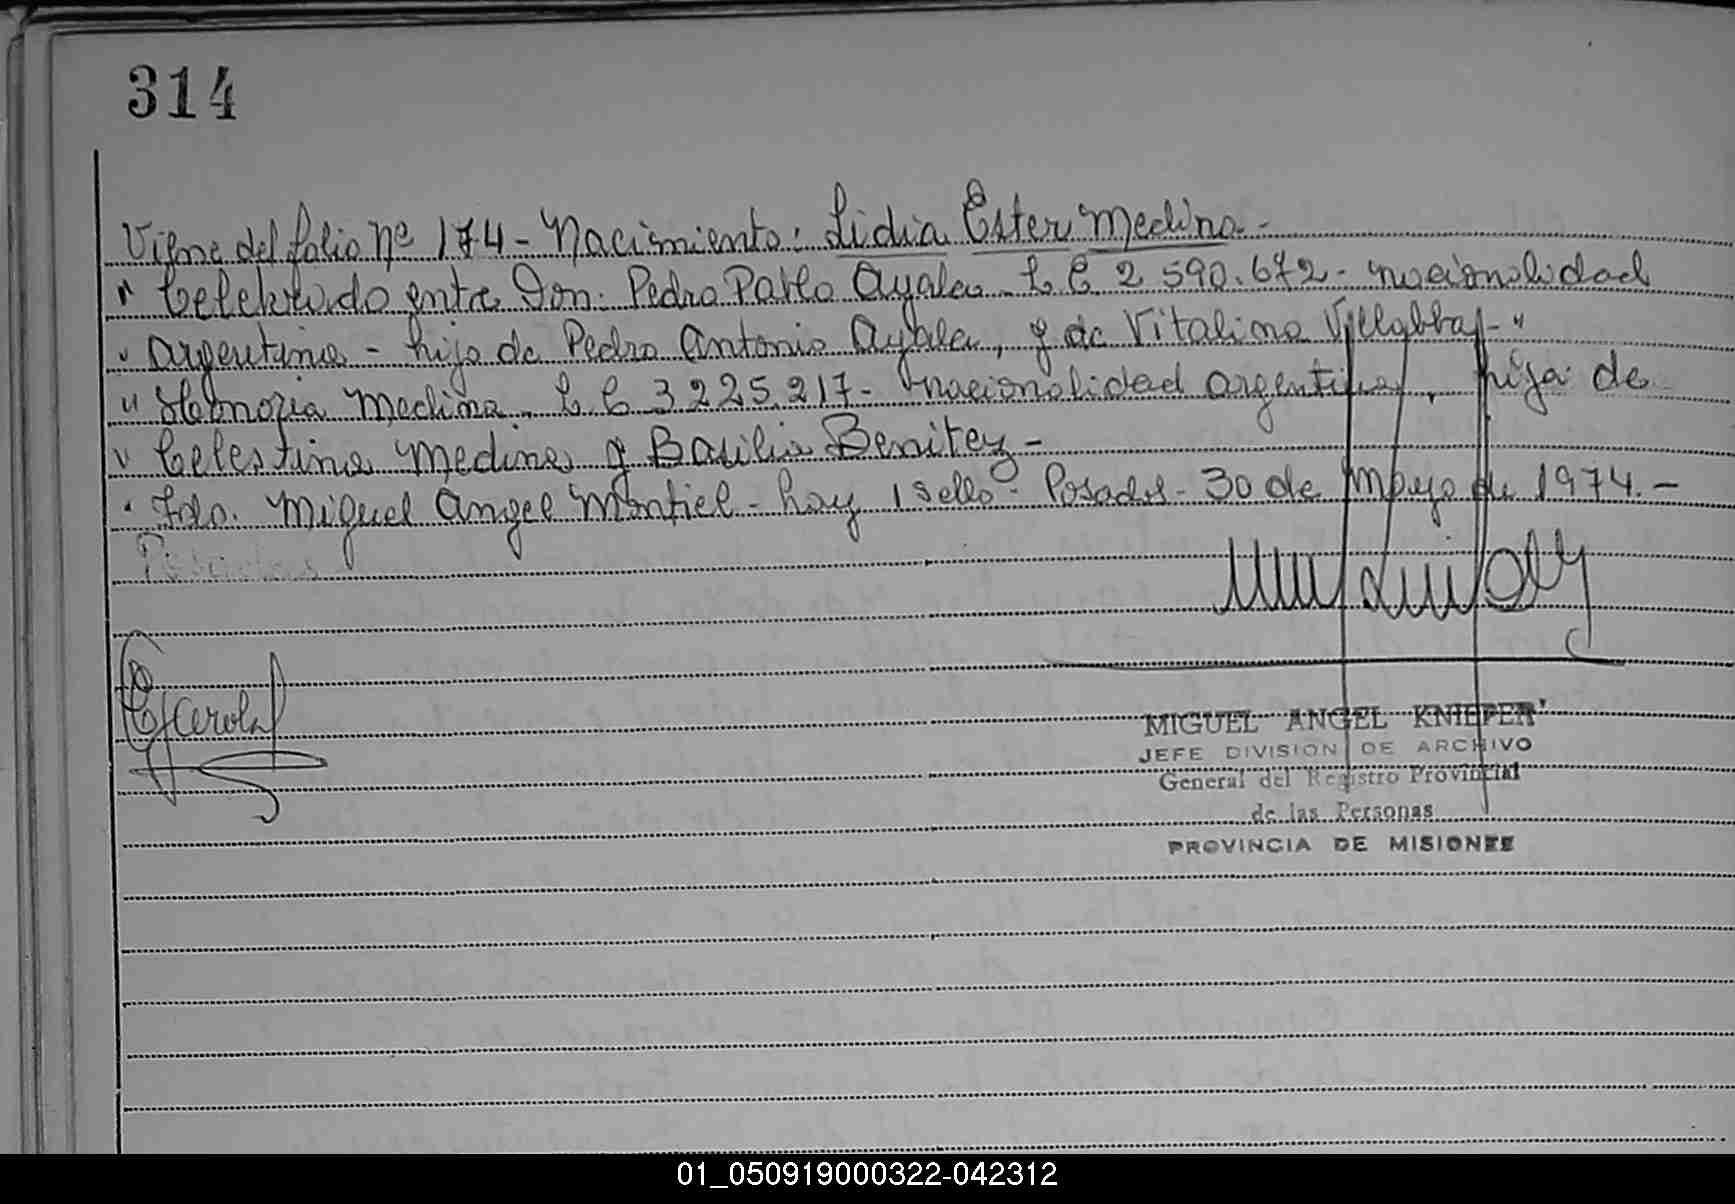 314
Viene del folio Nº 174 - Nacimiento: Lidia Ester Medina -
" Celebrado entre Don: Pedro Pablo Ayala - L E 2 590.672 - nacionalidad
" argentina - hijo de Pedro Antonio Ayala, y de Vitalina Villalba - "
" Medina. L C 3225.217 - nacionalidad argentina, hija de
" Celestino Medina y Basilia Benitez -
" Fdo. Miguel Angel Montiel - hay 1 sello - Posadas - 30 de Mayo de 1974. -
Posadas
MIGUEL ANGEL KNIEPER
JEFE DIVISION DE ARCHIVO
General del Registro Provincial
de las Personas
PROVINCIA DE MISIONES
01_050919000322-042312